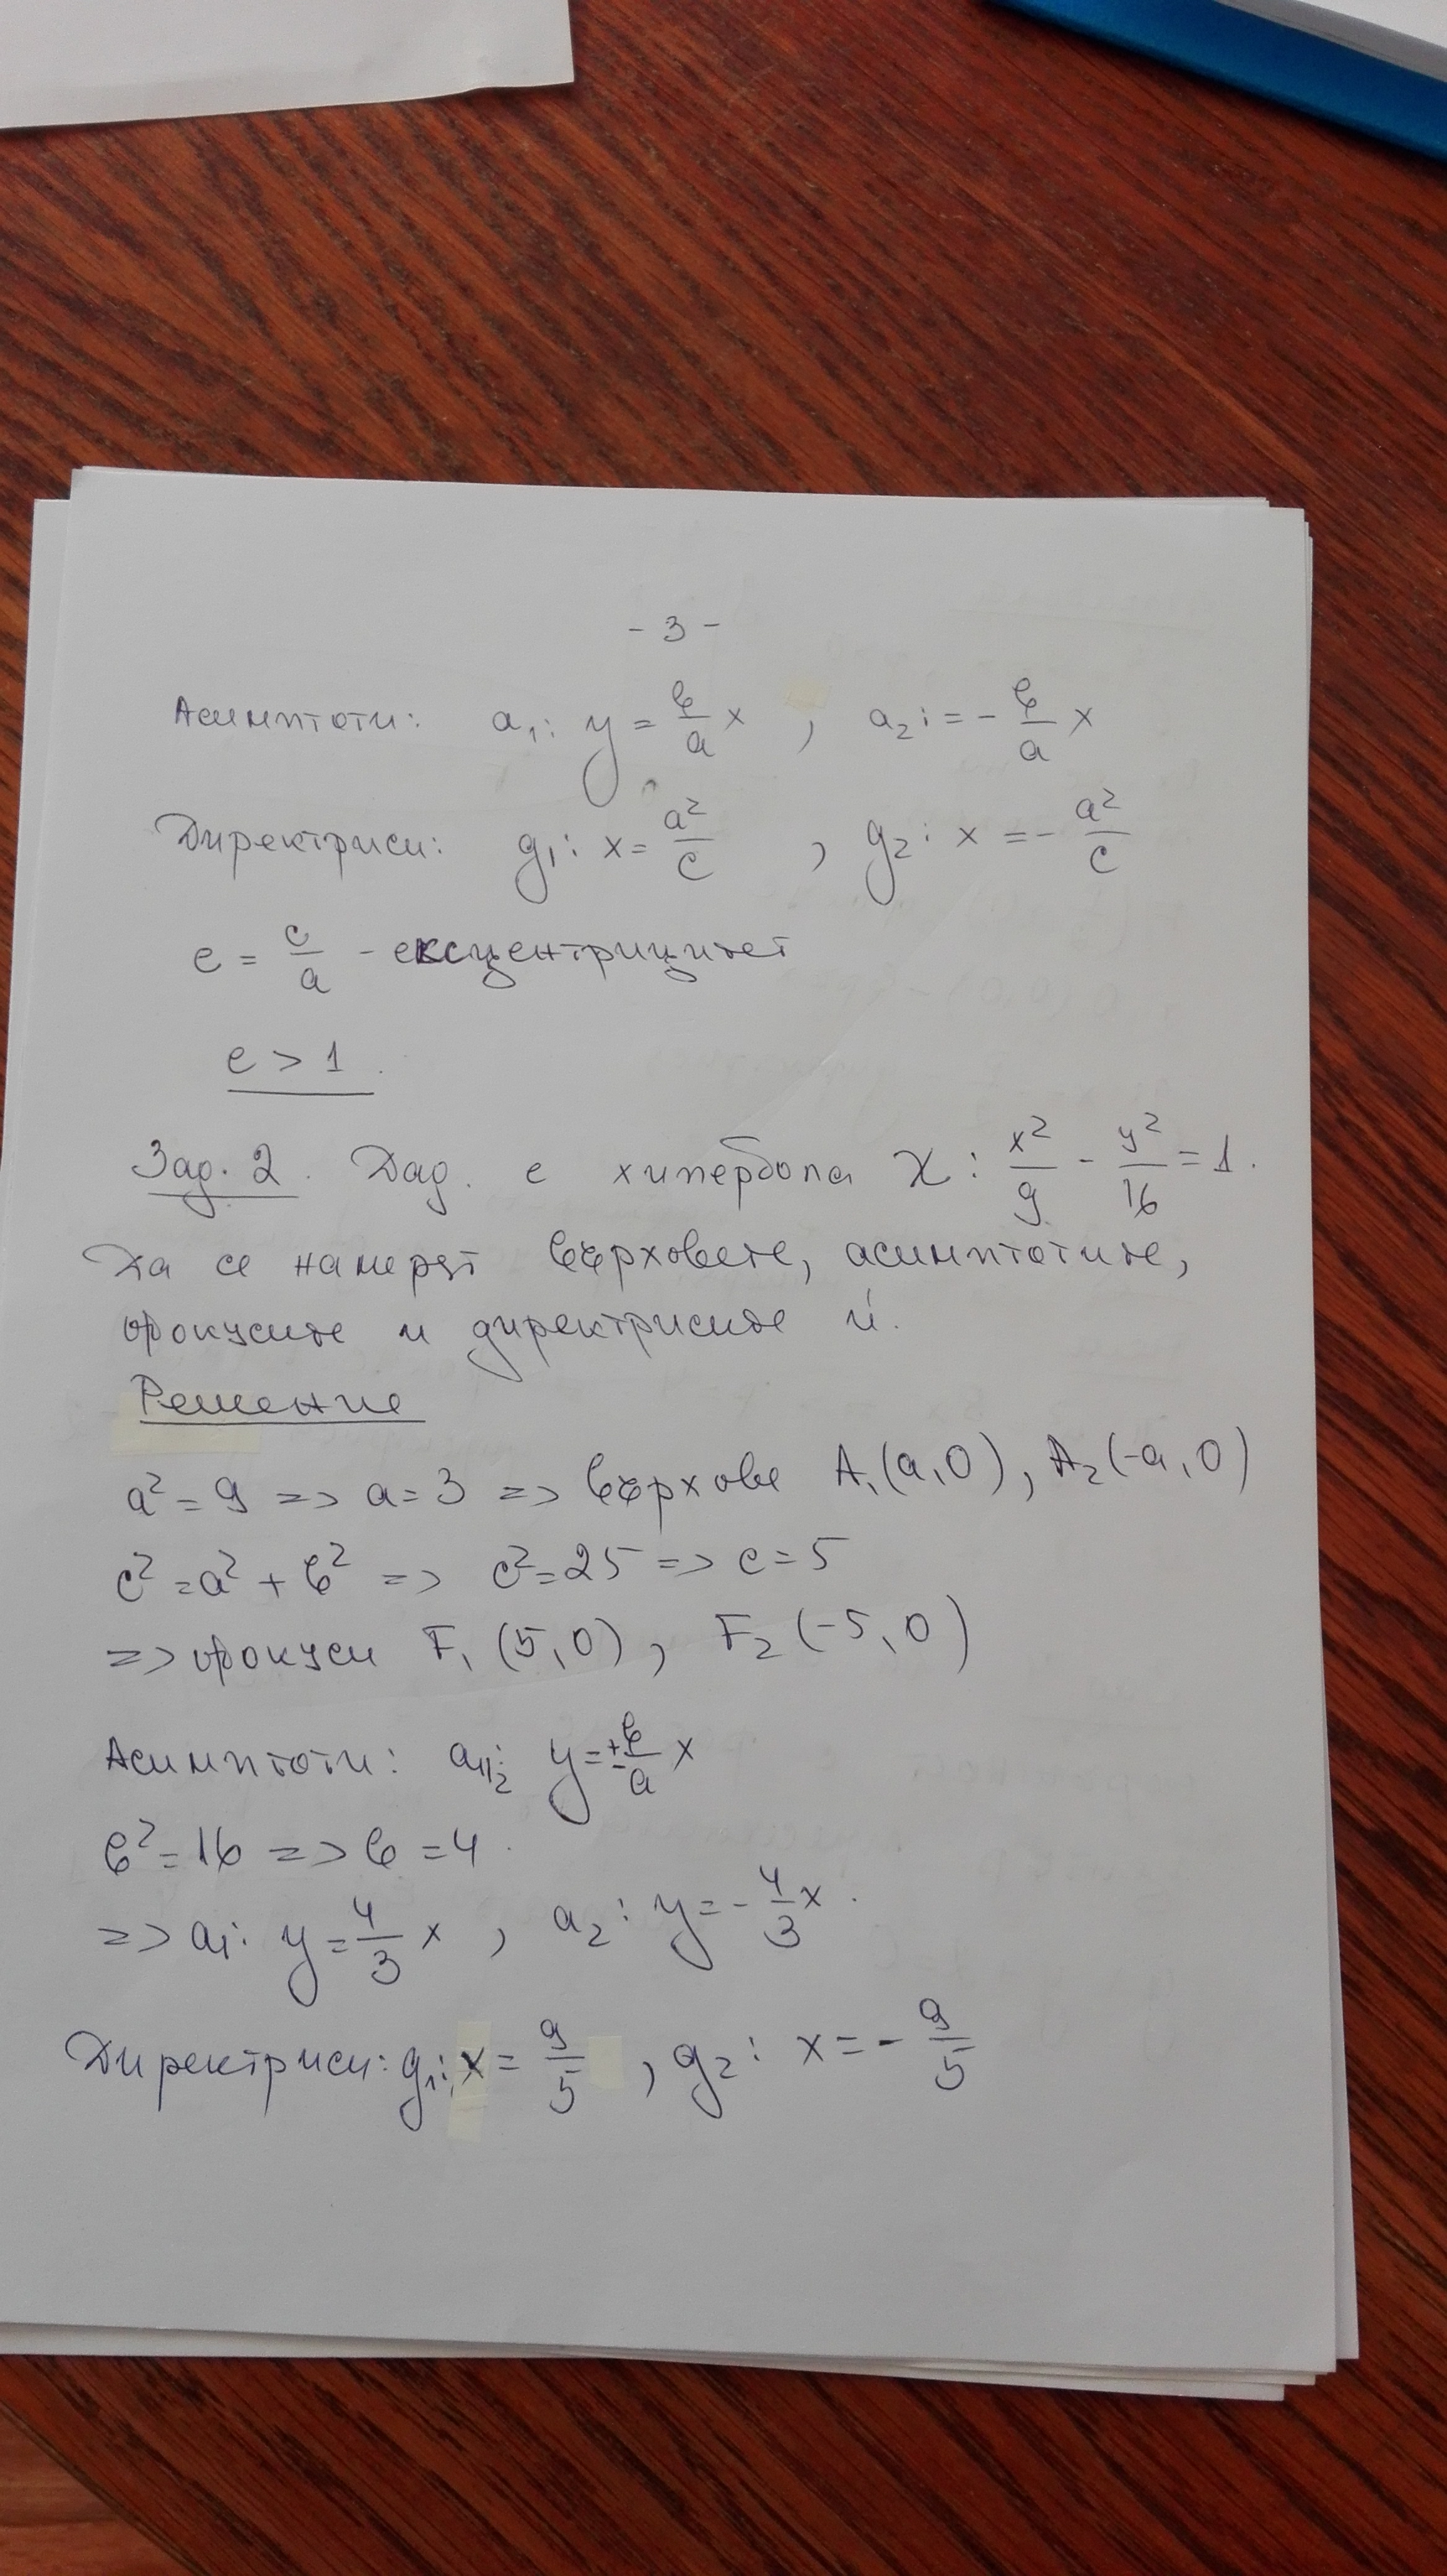 - 3 -
Асимптоти: a₁: y = b/a x , a₂: = - b/a x
Директриси: g₁: x = a²/c , g₂: x = - a²/c
e = c/a - ексцентрицитет
e > 1.
Зад. 2. Дад. е хипербола χ: x²/9 - y²/16 = 1.
Да се намерят върховете, асимптотите,
фокусите и директрисите ѝ.
Решение
a² = 9 => a = 3 => върхове A₁(a,0), A₂(-a,0)
c² = a² + b² => c² = 25 => c = 5
=> фокуси F₁(5,0), F₂(-5,0)
Асимптоти: a₁,₂: y = ± b/a x
b² = 16 => b = 4.
=> a₁: y = 4/3 x , a₂: y = - 4/3 x.
Директриси: g₁: x = 9/5 , g₂: x = - 9/5